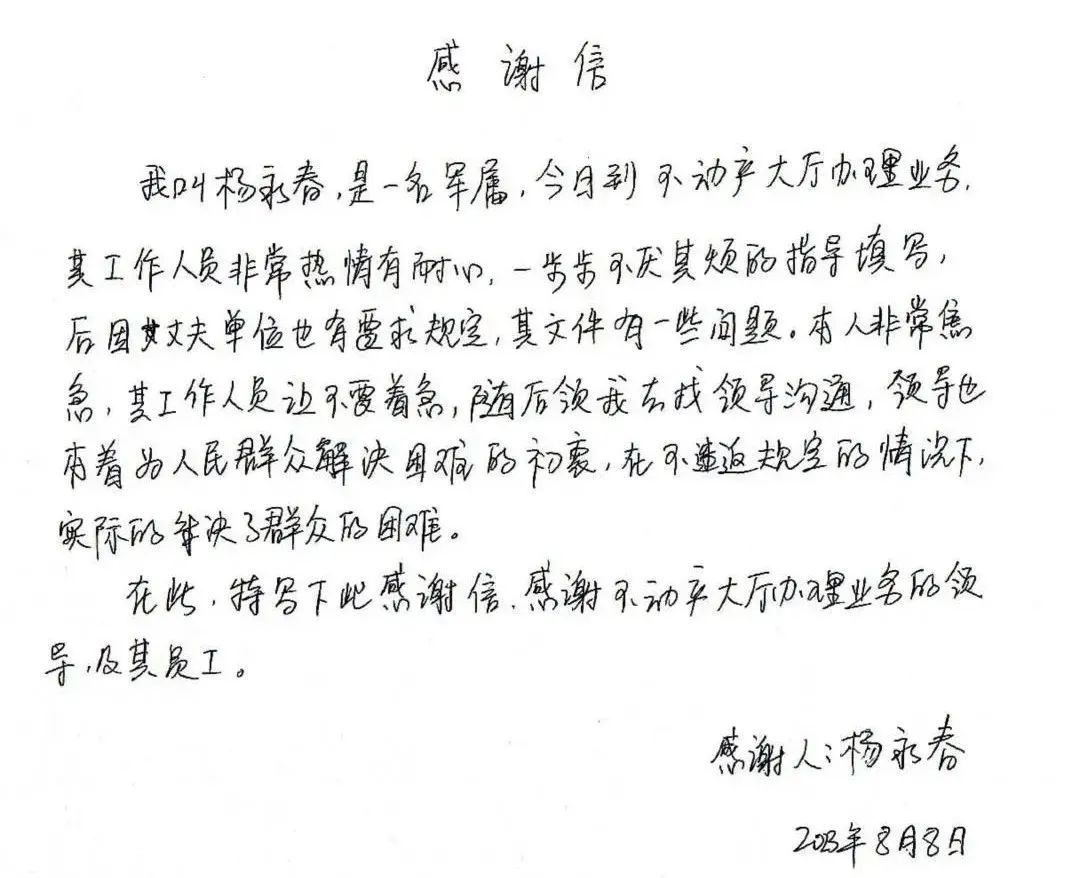 感谢信
我叫杨永春,是一名军属,今日到不动产大厅办理业务,
其工作人员非常热情有耐心,一步步不厌其烦的指导填写,
后因丈夫单位也有要求规定,其文件有一些问题。本人非常焦
急,其工作人员让不要着急,随后领我去找领导沟通,领导也
有着为人民群众解决困难的初衷,在不违返规定的情况下,
实际的解决了群众的困难。
在此,特写下此感谢信,感谢不动产大厅办理业务的领
导,及其员工。
感谢人:杨永春
2023年8月8日